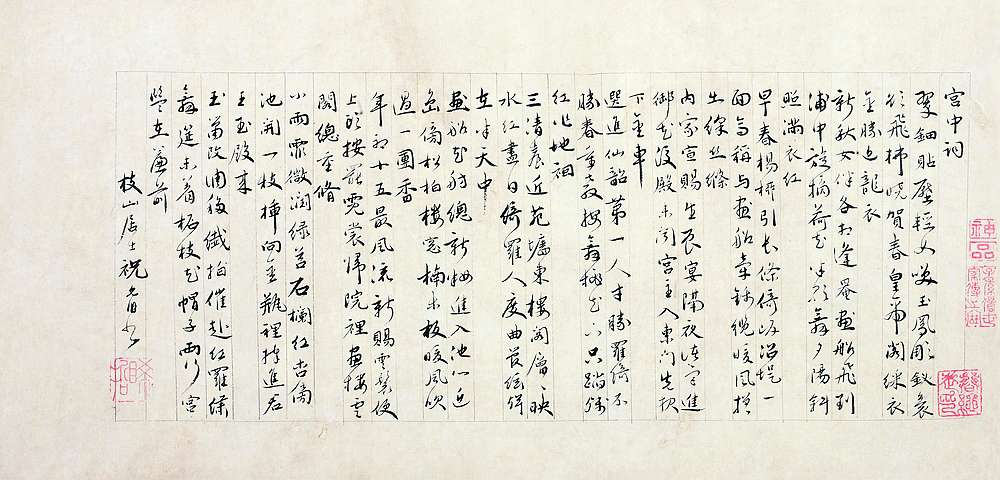 宮中詞
翠鈿貼靨輕如咲玉鳳雕釵裊
欲飛拂曉賀春皇帝閣綵衣
金勝近龍衣
新秋女伴各相逢罨畫船飛到
浦中旋摘荷花半歌舞夕陽斜
照滿衣紅
早春楊柳引長條倚岸沿堤一
面高稱与畫船牽錦纜暖風搓
出綵絲絛
內家宣賜生辰宴隔夜諸宮進
御花後殿未聞宮主入東門先報
下金車
選進仙韶第一人才勝羅綺不
勝春重教按舞桃花下只踏殘
紅作地裀
三清臺近苑墻東樓閣層〻映
水紅盡日綺羅人度曲管絃聲
在半天中
畫船花舫總新妝進入池心近
島傍松柏樓窓楠木板暖風吹
過一團香
年初十五最風流新賜雲鬟便
上頭按罷霓裳歸院裡畫樓雲
閣總重修
小雨霏微潤綠苔石欄紅杏傍
池開一枝插向金瓶裡捧進君
王玉殿來
玉簫改調移纖指催赴紅羅繡
舞筵未着柘枝花帽子兩行宮
監在簾前
枝山居士祝允明書
神品